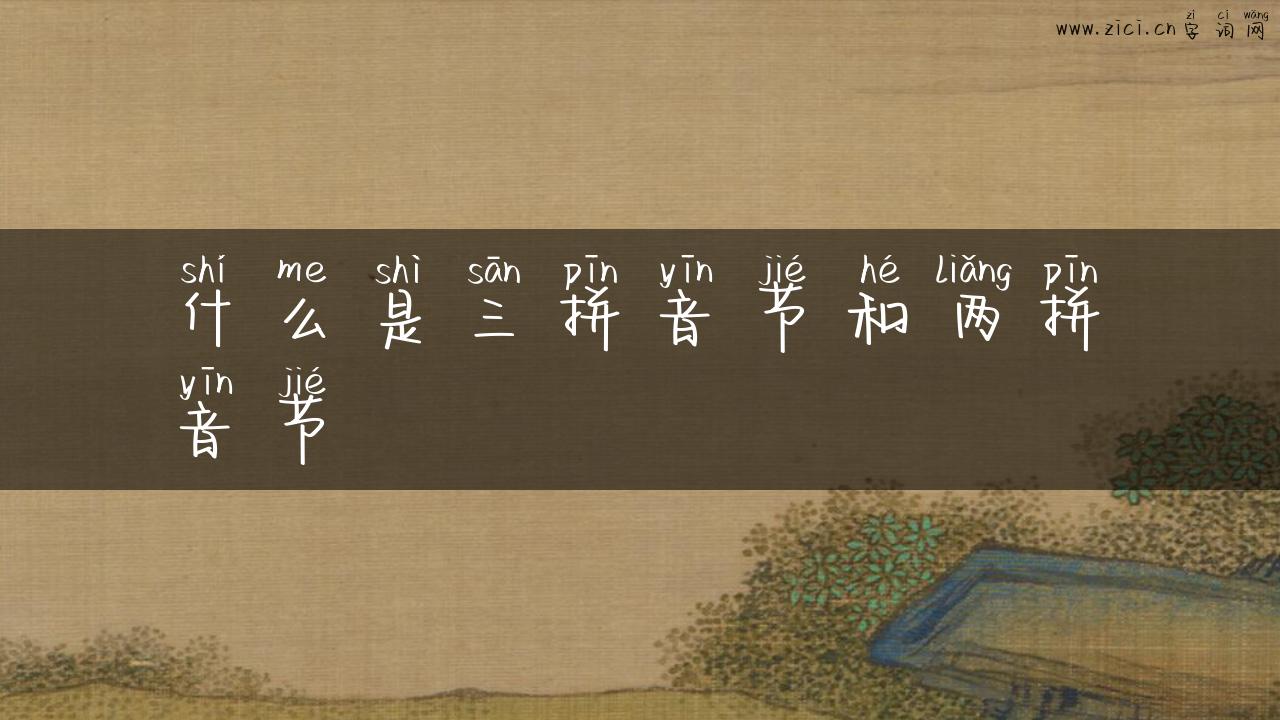 zì cí wǎng
www.zici.cn 字 词 网
shí me shì sān pīn yīn jié hé liǎng pīn
什 么 是 三 拼 音 节 和 两 拼
yīn jié
音 节